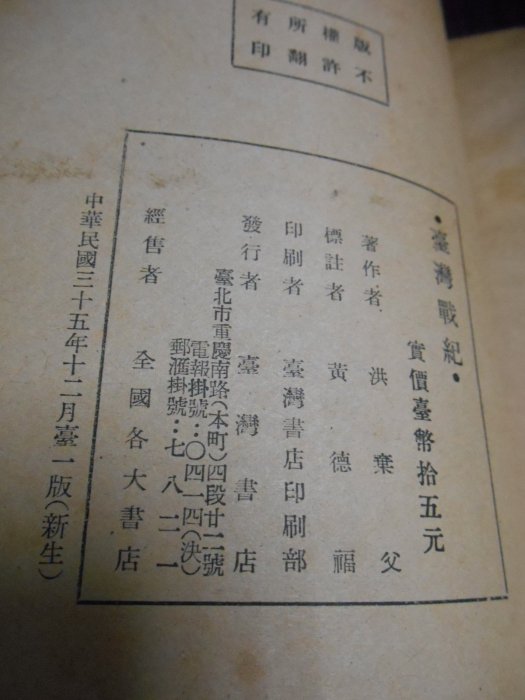 版權所有
不許翻印
•臺灣戰紀•
實價臺幣拾五元
著作者 洪棄父
標註者 黃德福
印刷者 臺灣書店印刷部
發行者 臺灣書店
臺北市重慶南路(本町)四段廿二號
電報掛號：〇四一四(決)
郵滙掛號：七八二一
經售者 全國各大書店
中華民國三十五年十二月臺一版(新生)